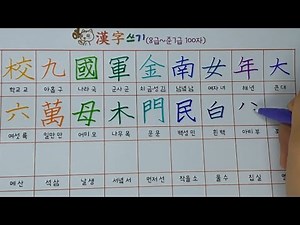 漢字 쓰기(8급~준7급 100자)
校 九 國 軍 金 南 女 年 大
학교 교 아홉 구 나라 국 군사 군 쇠 금 남녘 남 여자 녀 해 년 큰 대
六 萬 母 木 門 民 白
여섯 륙 일만 만 어미 모 나무 목 문 문 백성 민 흰 백 아비 부
메 산 석 삼 날 생 서녘 서 먼저 선 작을 소 물 수 집 실